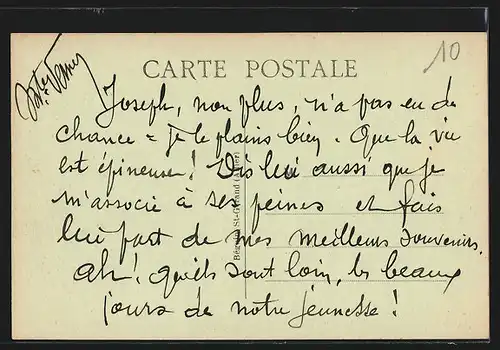 10
CARTE POSTALE
Joseph, non plus, n'a pas eu de
chance = je le plains bien. Que la vie
est épineuse! Dis lui aussi que je
m'associe à ses peines et fais
lui part de mes meilleurs souvenirs.
Ah! qu'ils sont loin, les beaux
jours de notre jeunesse!